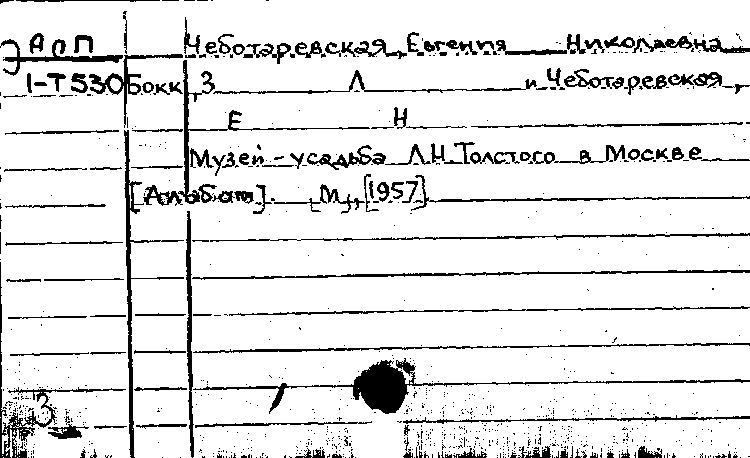 АоП Чеботаревская, Евгения Николаевна
1-Т530 Бокк, З Л и Чеботаревская,
Е Н
Музей-усадьба Л.Н.Толстого в Москве
[Альбом]. [М.], [1957].
3